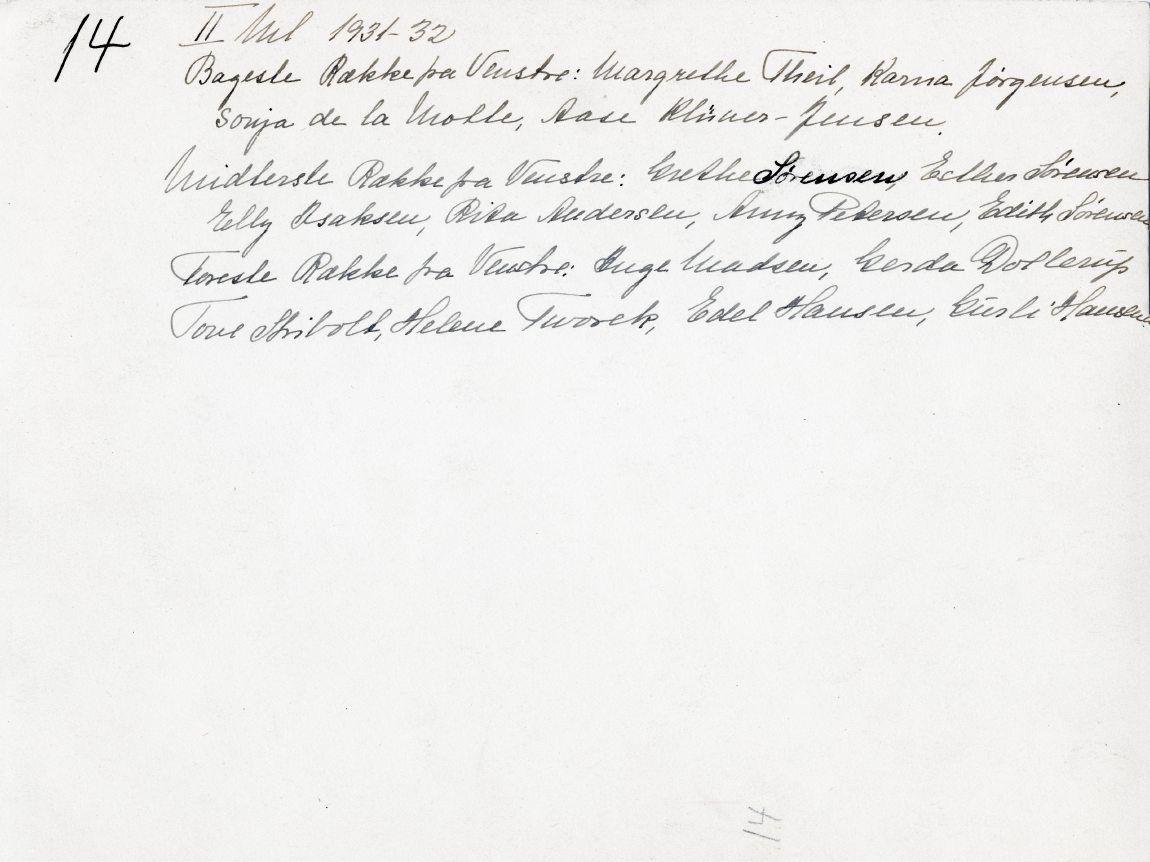 14
II Ml 1931-32
Bageste Række fra Venstre: Margrethe Theil, Karna Jørgensen,
Sonja de la Motte, Aase Klüver-Jensen.
Midterste Række fra Venstre: Grethe Sørensen, Esther Sørensen
Elly Isaksen, Rita Andersen, Anny Petersen, Edith Sørensen
Foreste Række fra Venstre: Inge Madsen, Gerda Dollerup
Tove Stribolt, Helene Tworek, Edel Hansen, Gurli Hansen
14